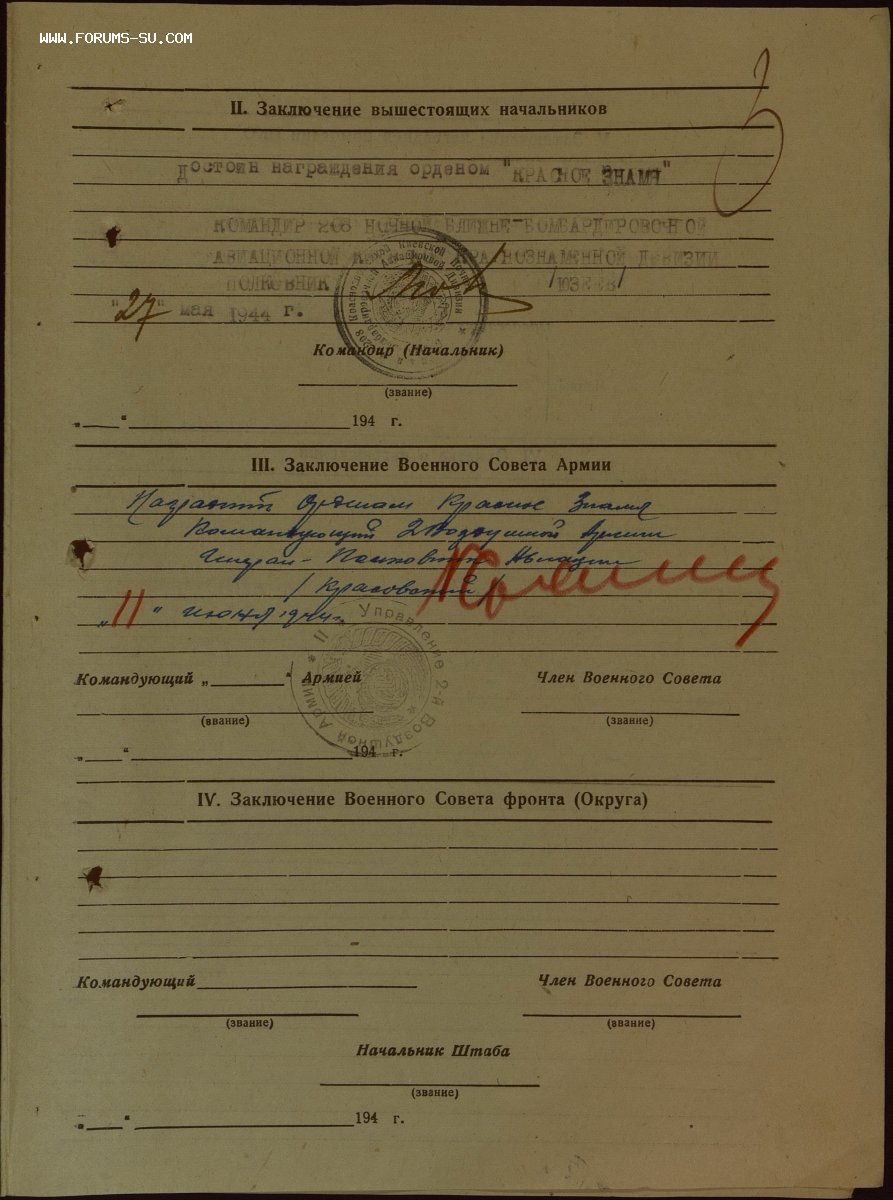 WWW.FORUMS-SU.COM
3
II. Заключение вышестоящих начальников
Достоин награждения орденом "КРАСНОЕ ЗНАМЯ"
КОМАНДИР 208 НОЧНОЙ БЛИЖНЕ-БОМБАРДИРОВОЧНОЙ
АВИАЦИОННОЙ КРАСНОЗНАМЕННОЙ ДИВИЗИИ
ПОЛКОВНИК /ЮЗЕЕВ/
"27" мая 1944 г.
Командир (Начальник)
(звание)
„ “ 194 г.
III. Заключение Военного Совета Армии
Наградить Орденом Красное Знамя
Командующий 2 Воздушной Армии
Генерал-Полковник Авиации
/Красовский/
„11" июня 1944 г.
Управление 2-й Воздушной Армии
Командующий „ “ Армией Член Военного Совета
(звание) (звание)
„ “ 194 г.
IV. Заключение Военного Совета фронта (Округа)
Командующий Член Военного Совета
(звание) (звание)
Начальник Штаба
(звание)
„ “ 194 г.